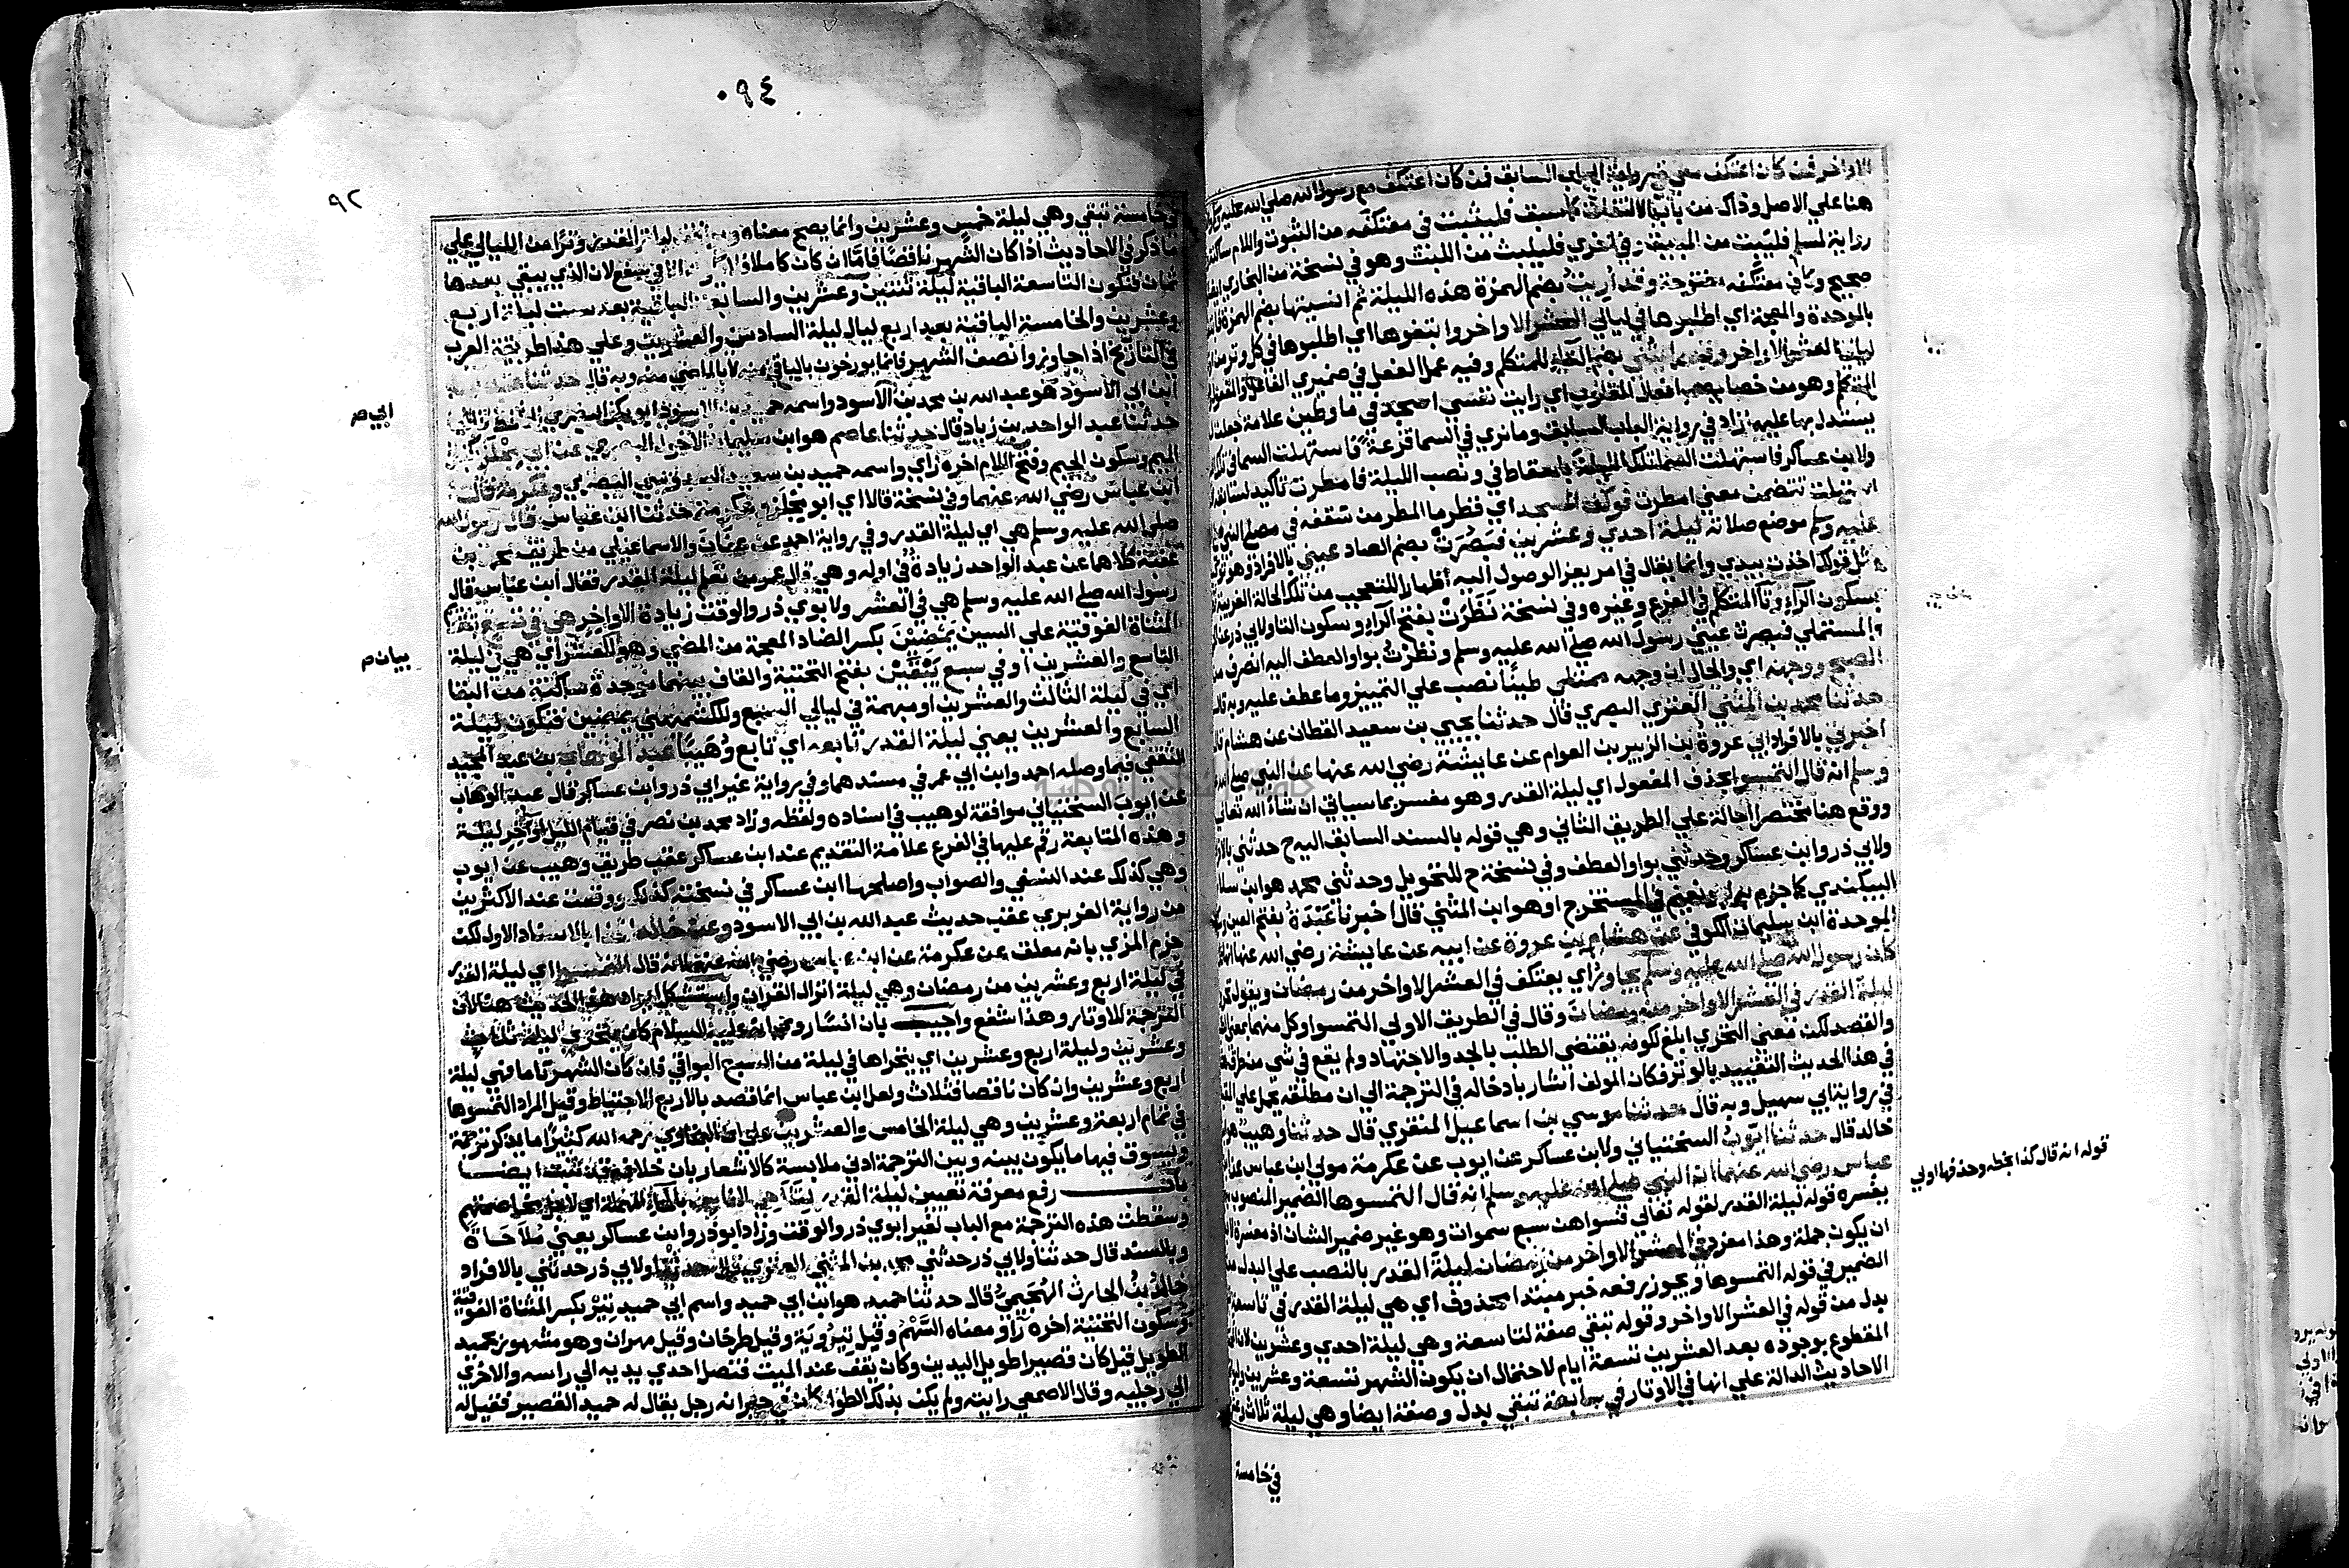 الاواخر فمن كان اعتكف معي في رواية الباب السابق من كان اعتكف مع رسول الله صلى الله عليه وسلم
هنا على الاصل وذاك من باب الالتفات كما سبق فليثبت في معتكفه من الثبوت واللام ساكنة
رواية لمسلم فليبت من المبيت وفي اخري فليلبث من اللبث وهو في نسخة من البخاري ايضا
صحيح وكاف معتكفه مفتوحة وقد اريت بضم الهمزة هذه الليلة ثم انسيتها بضم الهمزة فابتغوها
بالموحدة والمعجمة اي اطلبوها في ليالي العشر الاواخر وابتغوها اي اطلبوها في كل وتر من
ليالي العشر الاواخر وقد رايتني بضم التاء للمتكلم وفيه عمل الفعل في ضميري الفاعل والمفعول
المتكلم وهو من خصايص افعال القلوب اي رايت نفسي اسجد في ما وطين علامة جعلت له
يستدل بها عليها زاد في رواية الباب السابق وما نري في السما قزعة فاستهلت السما في تلك
ولابن عساكر فاستهلت السما تلك الليلة باسقاط في ونصب الليلة فامطرت تاكيد لسابقه
استهلت تتضمن معني امطرت فوكف المسجد اي قطر ما المطر من سقفه في مصلي النبي صلى الله
عليه وسلم موضع صلاته ليلة احدي وعشرين فبصرت بضم الصاد عيني بالافراد وهو توكيد
مثل قولك اخذت بيدي وانما يقال في امر يعز الوصول اليه اظهارا للتعجب من تلك الحالة الغريبة
بسكون الراء وتا المتكلم في الفرع وغيره وفي نسخة نظرت بفتح الراء وسكون التا ولابي ذر عن
والمستملي فبصرت عيني رسول الله صلى الله عليه وسلم ونظرت بواو العطف اليه انصرف من
الصبح ووجهه اي والحال ان وجهه ممتلي طينا نصب على التمييز وما عطف عليه وبه قال
حدثنا محمد بن المثني العنزي البصري قال حدثنا يحيي بن سعيد القطان عن هشام قال
اخبرني بالافراد ابي عروة بن الزبير بن العوام عن عايشة رضي الله عنها عن النبي صلى الله عليه
وسلم انه قال التمسوا بحذف المفعول اي ليلة القدر وهو مفسر بما سياتي ان شاء الله تعالي
ووقع هنا مختصرا احالة على الطريق الثاني وهي قوله بالسند السابق اليه ح حدثني بالافراد
ولابي ذر وابن عساكر وحدثني بواو العطف وفي نسخة ح للتحويل وحدثني محمد هو ابن سلام
البيكندي كما جزم به ابو نعيم في المستخرج او هو ابن المثني قال اخبرنا عبدة بفتح العين وسكون
الموحدة ابن سليمان الكوفي عن هشام بن عروة عن ابيه عن عايشة رضي الله عنها انها قالت
كان رسول الله صلى الله عليه وسلم يجاور اي يعتكف في العشر الاواخر من رمضان ويقول تحروا
ليلة القدر في العشر الاواخر من رمضان وقال في الطريق الاولي التمسوا وكل منهما بمعني الطلب
والقصد لكن معني التحري ابلغ لكونه يقتضي الطلب بالجد والاجتهاد ولم يقع في شي من طرق هشام
في هذا الحديث التقييد بالوتر فكان المولف اشار بادخاله في الترجمة الي ان مطلقه يحمل على المقيد
في رواية ابي سهيل وبه قال حدثنا موسي بن اسماعيل المنقري قال حدثنا وهيب هو ابن
خالد قال حدثنا ايوب السختياني ولابن عساكر عن ايوب عن عكرمة مولي ابن عباس عن ابن
عباس رضي الله عنهما ان النبي صلى الله عليه وسلم انه قال التمسوها الضمير المنصوب
يفسره قوله ليلة القدر لقوله تعالي فسواهن سبع سموات وهو غير ضمير الشان اذ مفسره لا بد
ان يكون جملة وهذا مفرد في العشر الاواخر من رمضان ليلة القدر بالنصب على البدل من
الضمير في قوله التمسوها ويجوز رفعه خبر مبتدا محذوف اي هي ليلة القدر في تاسعة
بدل من قوله في العشر الاواخر وقوله تبقي صفة لتاسعة وهي ليلة احدي وعشرين لان
المقطوع بوجوده بعد العشرين تسعة ايام لاحتمال ان يكون الشهر تسعة وعشرين وليوافق
الاحاديث الدالة على انها في الاوتار في سابعة تبقي بدل وصفة ايضا وهي ليلة ثلاث وعشرين
في خامسة
قوله انه قال كذا بخطه وحذفها اولي
٠٩٤
٩٢
في خامسة تبقي وهي ليلة خمس وعشرين وانما يصح معناه ويوافق ليلة القدر وترا من الليالي علي
ما ذكر في الاحاديث اذا كان الشهر ناقصا فاما ان كان كاملا فلا تكون الا في شفع لان الذي يبقي بعدها
ثمان فتكون التاسعة الباقية ليلة ثنتين وعشرين والسابعة الباقية بعد ست ليلة اربع
وعشرين والخامسة الباقية بعد اربع ليال ليلة السادس والعشرين وعلي هذا طريقة العرب
في التاريخ اذا جاوزوا نصف الشهر فانما يورخون بالباقي منه لا بالماضي منه وبه قال حدثنا عبد الله
ابن ابي الاسود هو عبد الله بن محمد بن الاسود واسمه حميد بن الاسود ابو بكر البصري الحافظ قال
حدثنا عبد الواحد بن زياد قال حدثنا عاصم هو ابن سليمان الاحول البصري عن ابي مجلز بكسر
الميم وسكون الجيم وفتح اللام اخره زاي واسمه حميد بن سعيد السدوسي البصري وعكرمة قال
ابن عباس رضي الله عنهما وفي نسخة قالا اي ابو مجلز وعكرمة حدثنا ابن عباس قال رسول الله
صلى الله عليه وسلم هي اي ليلة القدر وفي رواية احمد عن عفان والاسماعيلي من طريق محمد بن
عقبة كلاهما عن عبد الواحد زيادة في اوله وهي قال عمر من يعلم ليلة القدر فقال ابن عباس قال
رسول الله صلى الله عليه وسلم هي في العشر ولابوي ذر والوقت زيادة الاواخر هي في تسع بتقديم
المثناة الفوقية علي السين يمضين بكسر الضاد المعجمة من المضي وهو للعشر اي هي في ليلة
التاسع والعشرين او في سبع يبقين بفتح التحتية والقاف بينهما موحدة ساكنة من البقا
اي في ليلة الثالث والعشرين او مبهمة في ليالي السبع وللكشميهني يمضين فتكون ليلة
السابع والعشرين يعني ليلة القدر تابعه اي تابع وهيبا عبد الوهاب بن عبد المجيد
الثقفي فيما وصله احمد وابن ابي عمر في مسندهما وفي رواية غير ابي ذر وابن عساكر قال عبد الوهاب
عن ايوب السختياني موافقة لوهيب في اسناده ولفظه وزاد محمد بن نصر في قيام الليل او اخر ليلة
وهذه المتابعة رقم عليها في الفرع علامة التقديم عند ابن عساكر عقب طريق وهيب عن ايوب
وهي كذلك عند النسفي والصواب واصلحها ابن عساكر في نسخته كذلك ووقعت عند الاكثرين
من رواية الفربري عقب حديث عبد الله بن ابي الاسود وعن خالد الحذا بالاسناد الاول لكن
جزم المزي بانه معلق عن عكرمة عن ابن عباس رضي الله عنهما انه قال التمسوا اي ليلة القدر
في ليلة اربع وعشرين من رمضان وهي ليلة انزال القران واستشكل ايراد هذا الحديث هنا لان
الترجمة للاوتار وهذا شفع واجيب بان انسا روي انه عليه السلام كان يتحري ليلة ثلاث
وعشرين وليلة اربع وعشرين اي يتحراها في ليلة من السبع البواقي فان كان الشهر تاما فهي ليلة
اربع وعشرين وان كان ناقصا فثلاث ولعل ابن عباس انما قصد بالاربع الاحتياط وقيل المراد التمسوها
في تمام اربعة وعشرين وهي ليلة الخامس والعشرين علي ان البخاري رحمه الله كثيرا ما يذكر ترجمة
ويسوق فيها ما يكون بينه وبين الترجمة ادني ملابسة كالاشعار بان خلافه قد ثبت ايضا
باب رفع معرفة تعيين ليلة القدر لتلاحي الناس بالحاء المهملة اي لاجل مخاصمتهم
وسقطت هذه الترجمة مع الباب لغير ابوي ذر والوقت وزاد ابو ذر وابن عساكر يعني ملاحاة
وبالسند قال حدثنا ولابي ذر حدثني محمد بن المثني العنزي قال حدثنا ولابي ذر حدثني بالافراد
خالد بن الحارث الهجيمي قال حدثنا حميد هو ابن ابي حميد واسم ابي حميد تير بكسر المثناة الفوقية
وسكون التحتية اخره راء ومعناه السهم وقيل تيرويه وقيل طرخان وقيل مهران وهو مشهور بحميد
الطويل قيل كان قصيرا طويل اليدين وكان يقف عند الميت فتصل احدي يديه الي راسه والاخري
الي رجليه وقال الاصمعي رايته ولم يكن بذلك الطول كان في جيرانه رجل يقال له حميد القصير فقيل له
ابي صر
بيان م